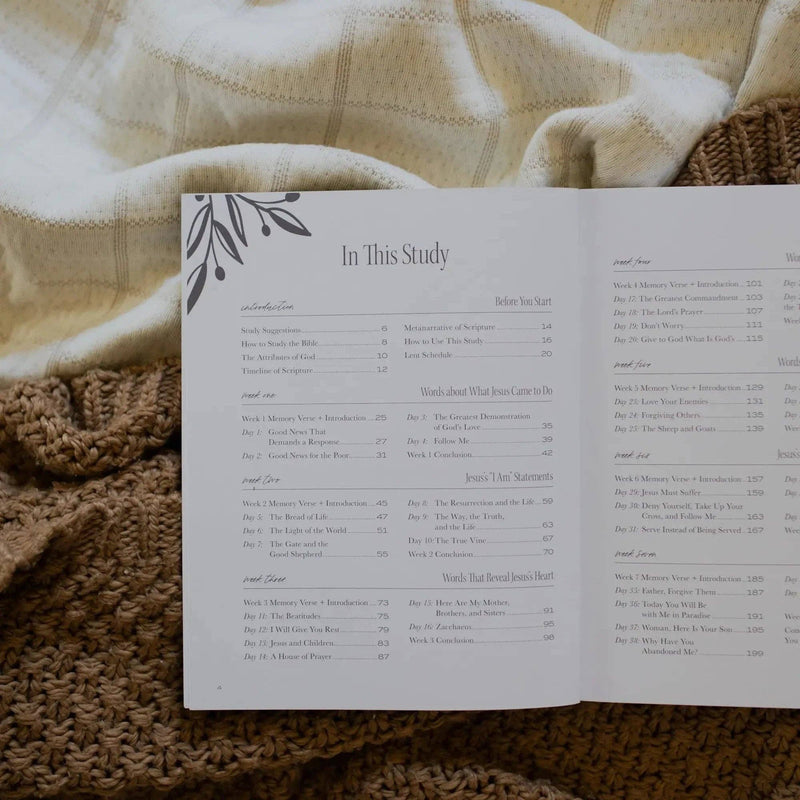 In This Study
introduction
Before You Start
Study Suggestions 6
How to Study the Bible 8
The Attributes of God 10
Timeline of Scripture 12
Metanarrative of Scripture 14
How to Use This Study 16
Lent Schedule 20
week one
Words about What Jesus Came to Do
Week 1 Memory Verse + Introduction 25
Day 1: Good News That
Demands a Response 27
Day 2: Good News for the Poor 31
Day 3: The Greatest Demonstration
of God's Love 35
Day 4: Follow Me 39
Week 1 Conclusion 42
week two
Jesus's "I Am" Statements
Week 2 Memory Verse + Introduction 45
Day 5: The Bread of Life 47
Day 6: The Light of the World 51
Day 7: The Gate and the
Good Shepherd 55
Day 8: The Resurrection and the Life 59
Day 9: The Way, the Truth,
and the Life 63
Day 10: The True Vine 67
Week 2 Conclusion 70
week three
Words That Reveal Jesus's Heart
Week 3 Memory Verse + Introduction 73
Day 11: The Beatitudes 75
Day 12: I Will Give You Rest 79
Day 13: Jesus and Children 83
Day 14: A House of Prayer 87
Day 15: Here Are My Mother,
Brothers, and Sisters 91
Day 16: Zacchaeus 95
Week 3 Conclusion 98
4
week four
Week 4 Memory Verse + Introduction 101
Day 17: The Greatest Commandment 103
Day 18: The Lord's Prayer 107
Day 19: Don't Worry 111
Day 20: Give to God What Is God's 115
week five
Week 5 Memory Verse + Introduction 129
Day 23: Love Your Enemies 131
Day 24: Forgiving Others 135
Day 25: The Sheep and Goats 139
week six
Week 6 Memory Verse + Introduction 157
Day 29: Jesus Must Suffer 159
Day 30: Deny Yourself, Take Up Your
Cross, and Follow Me 163
Day 31: Serve Instead of Being Served 167
week seven
Week 7 Memory Verse + Introduction 185
Day 35: Father, Forgive Them 187
Day 36: Today You Will Be
with Me in Paradise 191
Day 37: Woman, Here Is Your Son 195
Day 38: Why Have You
Abandoned Me? 199